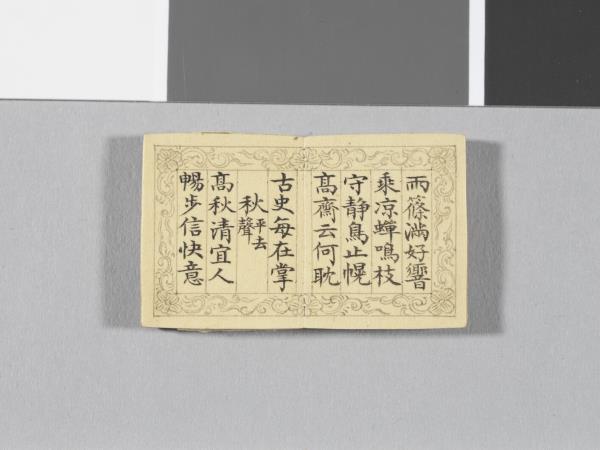 雨篠滿好響
乘涼蟬鳴枝
守静鳥止幌
髙齋云何耽
古史每在掌
秋聲平去
髙秋清宜人
暢步信快意